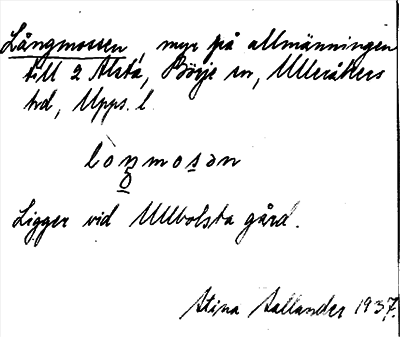 Långmossen, myr på allmänningen
till 2 Alsta, Börje sn, Ulleråkers
hd, Upps. l.
loŋmosən
Ligger vid Ullbolsta gård.
Stina Sallander 1937.